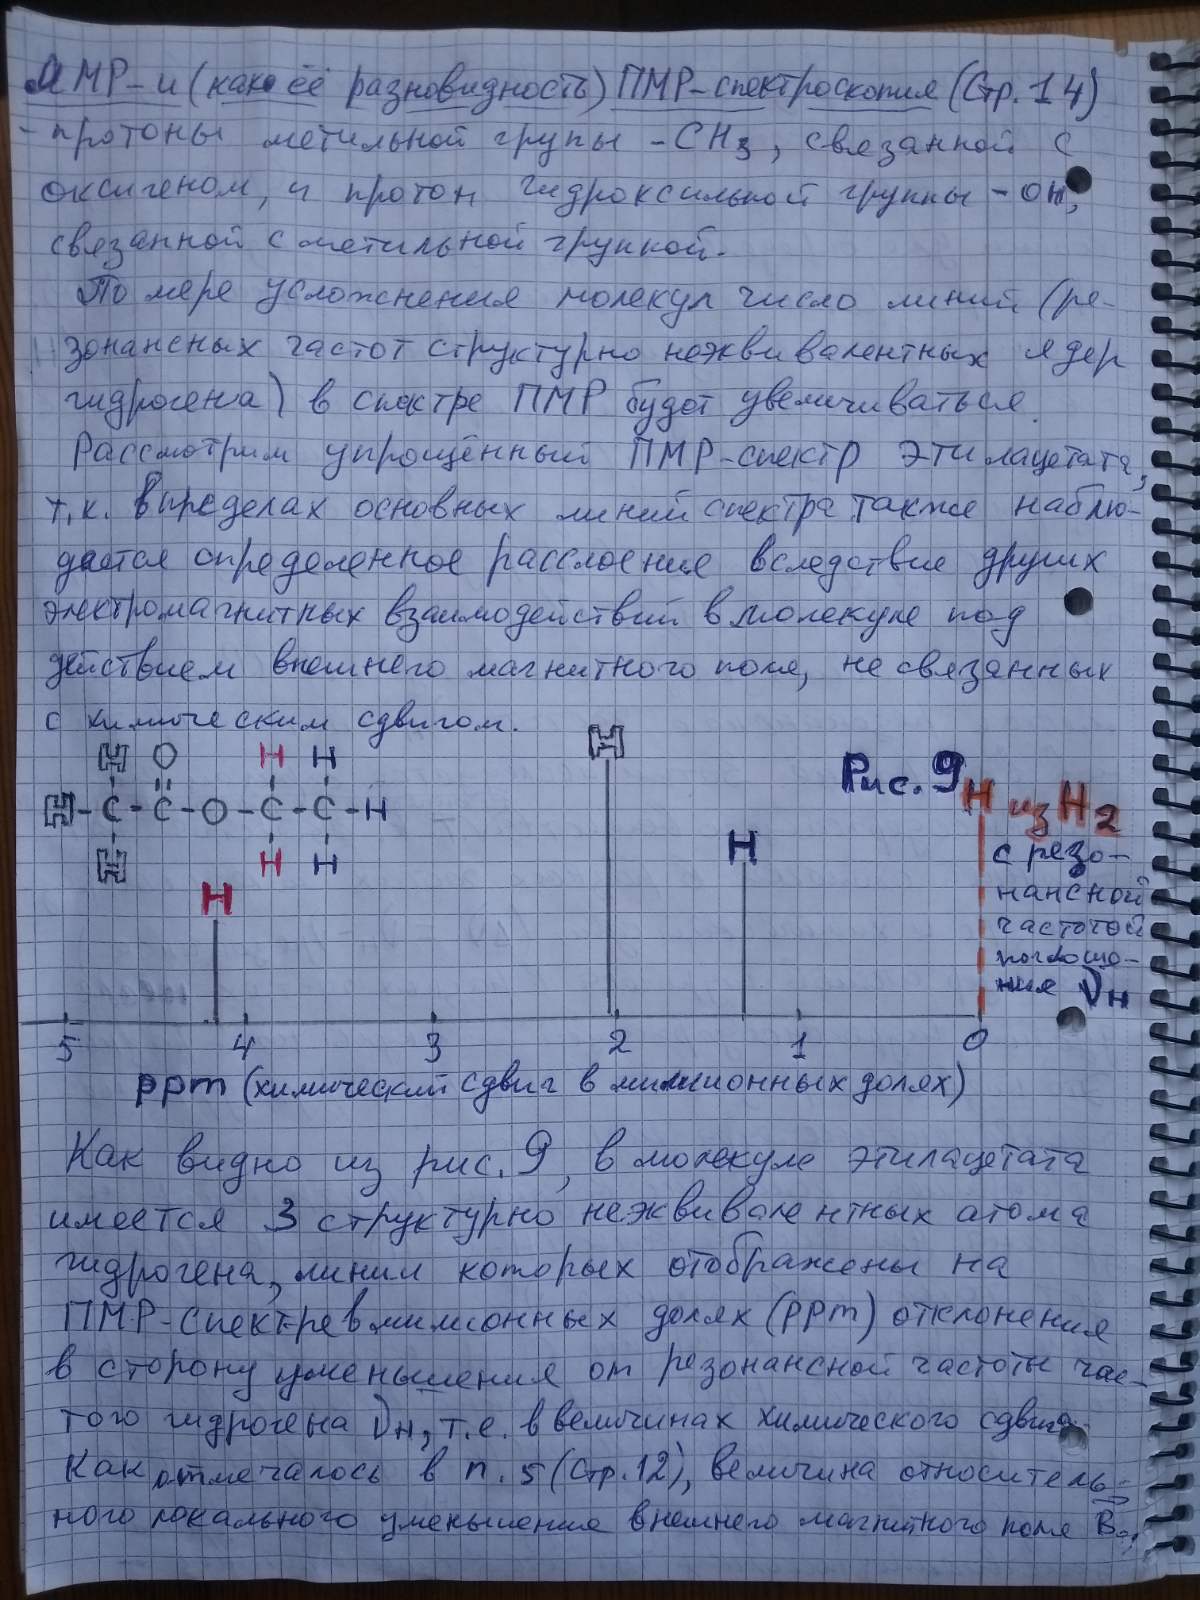 ЯМР-и (как её разновидность) ПМР-спектроскопия (Стр. 14)
- протоны метильной групы -CH3, связанной с
оксигеном, и протон гидроксильной группы -OH,
связанной с метильной группой.
По мере усложнения молекул число линий (ре-
зонансных частот структурно неэквивалентных ядер
гидрогена) в спектре ПМР будет увеличиваться.
Рассмотрим упрощённый ПМР-спектр этилацетата,
т.к. в пределах основных линий спектра также наблю-
дается определенное расслоение вследствие других
электромагнитных взаимодействий в молекуле под
действием внешнего магнитного поля, не связанных
с химическим сдвигом.
H O H H H
H-C-C-O-C-C-H
H H H
Рис. 9
H H H
H из H2
с резо-
нансной
частотой
поглоще-
ния νH
5 4 3 2 1 0
ppm (химический сдвиг в миллионных долях)
Как видно из рис. 9, в молекуле этилацетата
имеется 3 структурно неэквивалентных атома
гидрогена, линии которых отображены на
ПМР-спектре в миллионных долях (ppm) отклонения
в сторону уменьшения от резонансной частоты чис-
того гидрогена νH, т.е. в величинах химического сдвига.
Как отмечалось в п. 5 (Стр. 12), величина относитель-
ного локального уменьшения внешнего магнитного поля B0,